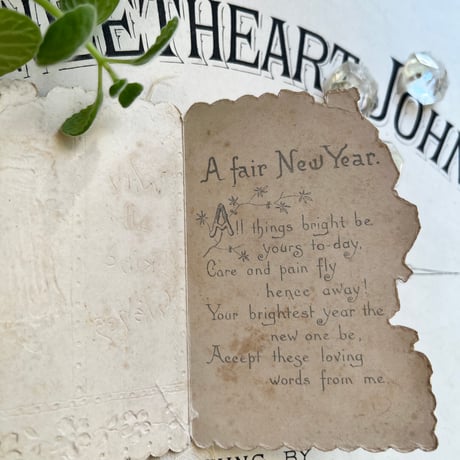 SWEETHEART JOHN
A fair New Year.
All things bright be
yours to-day,
Care and pain fly
hence away!
Your brightest year the
new one be,
Accept these loving
words from me.
BY